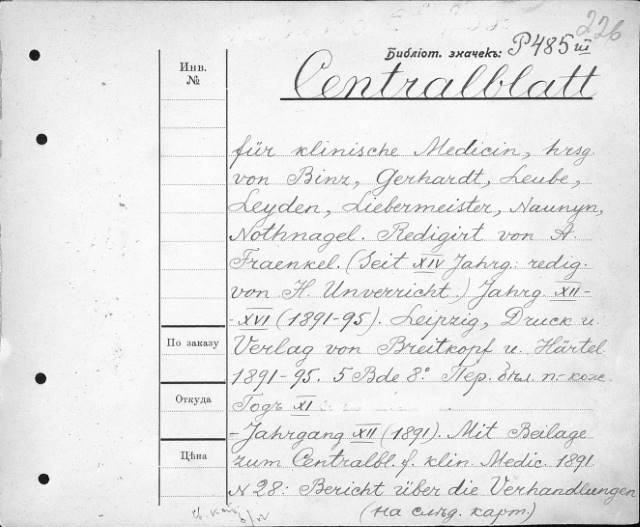 226
Библіот. значекъ: P485 III
Инв.
№
Centralblatt
für klinische Medicin, hrsg
von Binz, Gerhardt, Leube,
Leyden, Liebermeister, Naunyn,
Nothnagel. Redigirt von A.
Fraenkel. (Seit XIV Jahrg. redig.
von H. Unverricht.) Jahrg. XII-
-XVI (1891-95). Leipzig, Druck u.
По заказу
Verlag von Breitkopf u. Härtel
1891-95. 5 Bde 8º. Пер. бѣл. п.-кож.
Откуда
Годъ XI
-Jahrgang XII (1891). Mit Beilage
Цѣна
zum Centralbl. f. klin. Medic. 1891
N 28: Bericht über die Verhandlungen
(на слѣд. карт.)